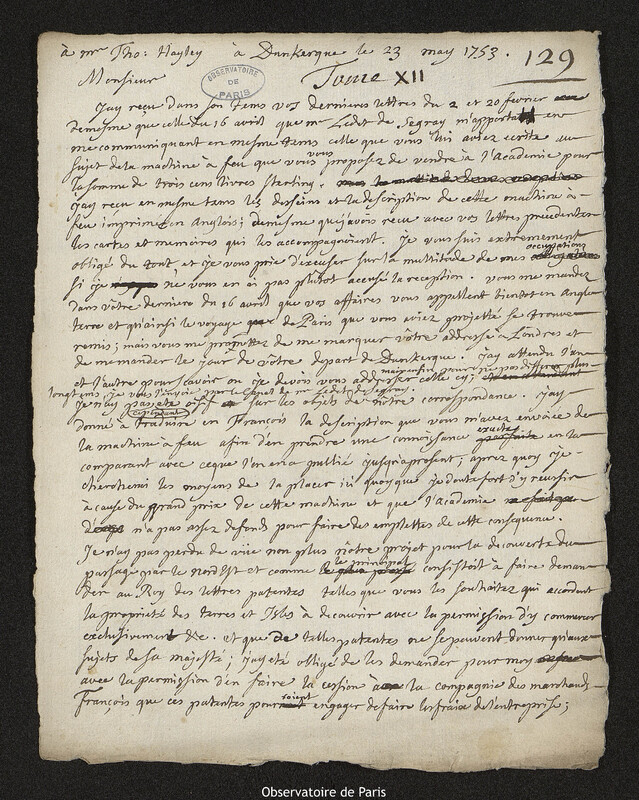 à mr Tho: Hayley à Dunkerque le 23 may 1753. 129
Monsieur Tome XII
OBSERVATOIRE DE PARIS
J'ay reçu dans son tems vos dernieres lettres du 2 et 20 fevrier
demesme que celle du 16 avril que mr Ledet de Segray m'apporta en
me communiquant en mesme tems celle que vous lui aviez ecrite au
sujet de la machine à feu que vous vous proposez de vendre à l'Academie pour
la somme de trois cens livres sterling.
J'ay reçu en mesme tams les desseins et la description de cette machine à
feu imprimée en Anglois; demesme que j'avois recu avec vos lettres precedentes
les cartes et memoires qui les accompagnoient. Je vous suis extremement
obligé du tout, et je vous prie d'excuser sur la multitude de mes occupations
si je ne vous en ai pas plutost accusé la reception. vous me mandez
dans vôtre derniere du 16 avril que vos affaires vous appellent bientot en Angle
terre et qu'ainsi le voyage de Paris que vous aviez projetté se trouve
remis; mais vous me promettez de me marquer vôtre addresse à Londres et
de me mander le jour de vôtre depart de Dunkerque. J'ay attendu l'un
et l'autre pour savoir ou je devois vous addresser celle cy; mais enfin pour ne pas differer plus
longtems, je vous l'envoie par le canal de mr Ledet de Segray.
Je n'ay pas eté oisif cependant sur les objets de nôtre correspondance. J'ay
donné à traduire en François la description que vous m'avez envoiée de
la machine à feu afin d'en prendre une connoisance exacte en la
comparant avec ceque l'on en a publié jusqu'aprosent; aprez quoy je
chercherai les moyens de la placer ici quoyque je doute fort d'y reussir
à cause du grand prix de cette machine et que l'Academie
n'a pas assez defonds pour faire des emplettes de cette consequence.
Je n'ay pas perdu de vüe non plus nôtre projet pour la decouverte du
passage par le Nord Est et comme le principal consistoit à faire deman
der au Roy des lettres patentes telles que vous les souhaitez qui accordent
la proprieté des terres et Isles à decouvrir avec la permission d'y commercer
exclusivement &c. et que de telles patentes ne se peuvent donner qu'aux
sujets de sa majesté; j'ay eté obligé de les demander pour moy
avec la permission d'en faire la cession à la compagnie des marchands
François que ces patentes pourroient engager de faire les fraix de l'entreprise;
Observatoire de Paris